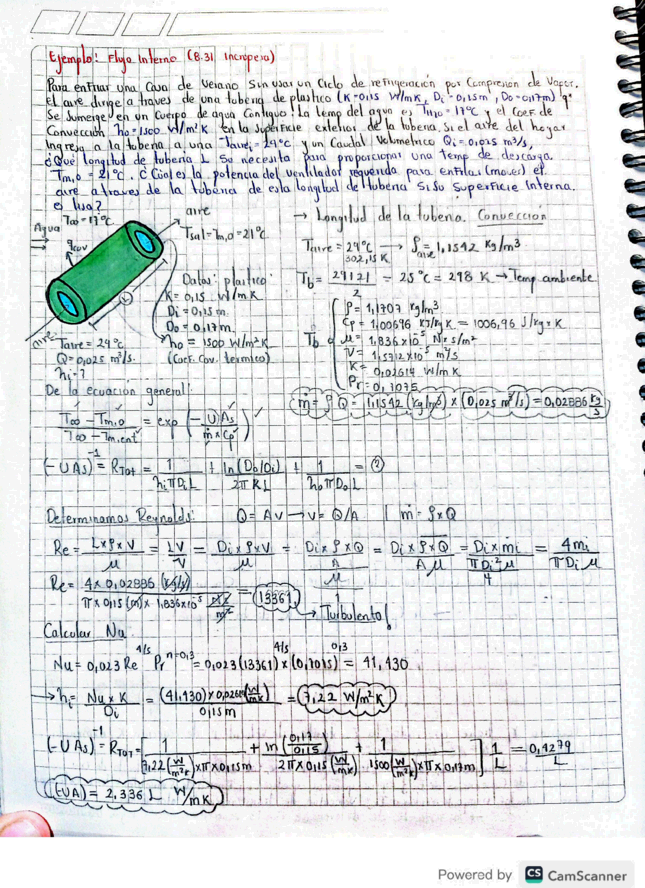 Ejemplo: Flujo Interno (8.31 Incropera)
Para enfriar una Casa de Verano Sin usar un Ciclo de refrigeración por Compresión de Vapor,
el aire dirige a traves de una tubería de plastico (K=0,15 W/mK, Di=0,15m, Do=0,17m) q'
Se Sumerge en un Cuerpo de agua Contiguo. La temp del agua es T∞=17°C y el Coef. de
Convección ho=1500 W/m²K en la Superficie exterior de la tubería. Si el aire del hogar
Ingresa a la tubería a una Tairei=29°C y un Caudal Volumetrico Qi=0,025 m³/s,
¿Qué longitud de tubería L Se necesita para proporcionar una temp. de descarga
Tm,o=21°C. ¿Cuál es la potencia del ventilador requerida para enfriar (mover) el
aire a traves de la tubería de esta longitud de tubería Si Su Superficie Interna.
es lisa?
Agua
T∞=17°C
aire
Tsal=Tm,o=21°C
qcov
L
aire
Taire=29°C
Q=0,025 m³/s.
hi=?
Datos: plastico:
K=0,15 W/mK
Di=0,15m
Do=0,17m
ho=1500 W/m²K
(Coef. Cov. termico)
→ Longitud de la tubería. Convección
Taire=29°C → ρaire=1,1542 Kg/m³
302,15K
Tb = 29+21/2 = 25°C = 298 K → Temp ambiente
Tb
ρ=1,1707 Kg/m³
Cp=1,00696 KJ/Kg K = 1006,96 J/Kg×K
μ=1,836×10⁻⁵ N×s/m²
V=1,5712×10⁻⁵ m²/s
K=0,02614 W/mK
Pr=0,7075
ṁ=ρQ=1,1542 (Kg/m³)×(0,025 m³/s)=0,02886 Kg/s
De la ecuación general:
T∞−Tm,o/T∞−Tm,ent = exp(−UAs/ṁ×Cp)
(−UAs)⁻¹=RTot= 1/hiπDiL + ln(Do/Di)/2πKL + 1/hoπDoL = ?
Determinamos Reynolds: Q=AV → V=Q/A | ṁ=ρ×Q
Re= L×ρ×V/μ = LV/V = Di×ρ×V/μ = Di×ρ×Q/A/μ = Di×ρ×Q/Aμ = Di×mi/πDi²μ/4 = 4mi/πDiμ
Re= 4×0,02886 (Kg/s)/π×0,15(m)×1,836×10⁻⁵ = 13361
→ Turbulento!
Calcular Nu
Nu=0,023 Re^4/5 Pr^n=0,3 = 0,023(13361)^4/5×(0,7075)^0,3 = 41,430
→ hi= Nu×K/Di = (41,430)×0,02614(W/mK)/0,15m = 7,22 W/m²K
(−UAs)⁻¹=RTot=[1/7,22(W/m²K)×π×0,15m + ln(0,17/0,15)/2π×0,15(W/mK) + 1/1500(W/m²K)×π×0,17m] 1/L = 0,4279/L
(UA)=2,336 L W/mK
Powered by CS CamScanner